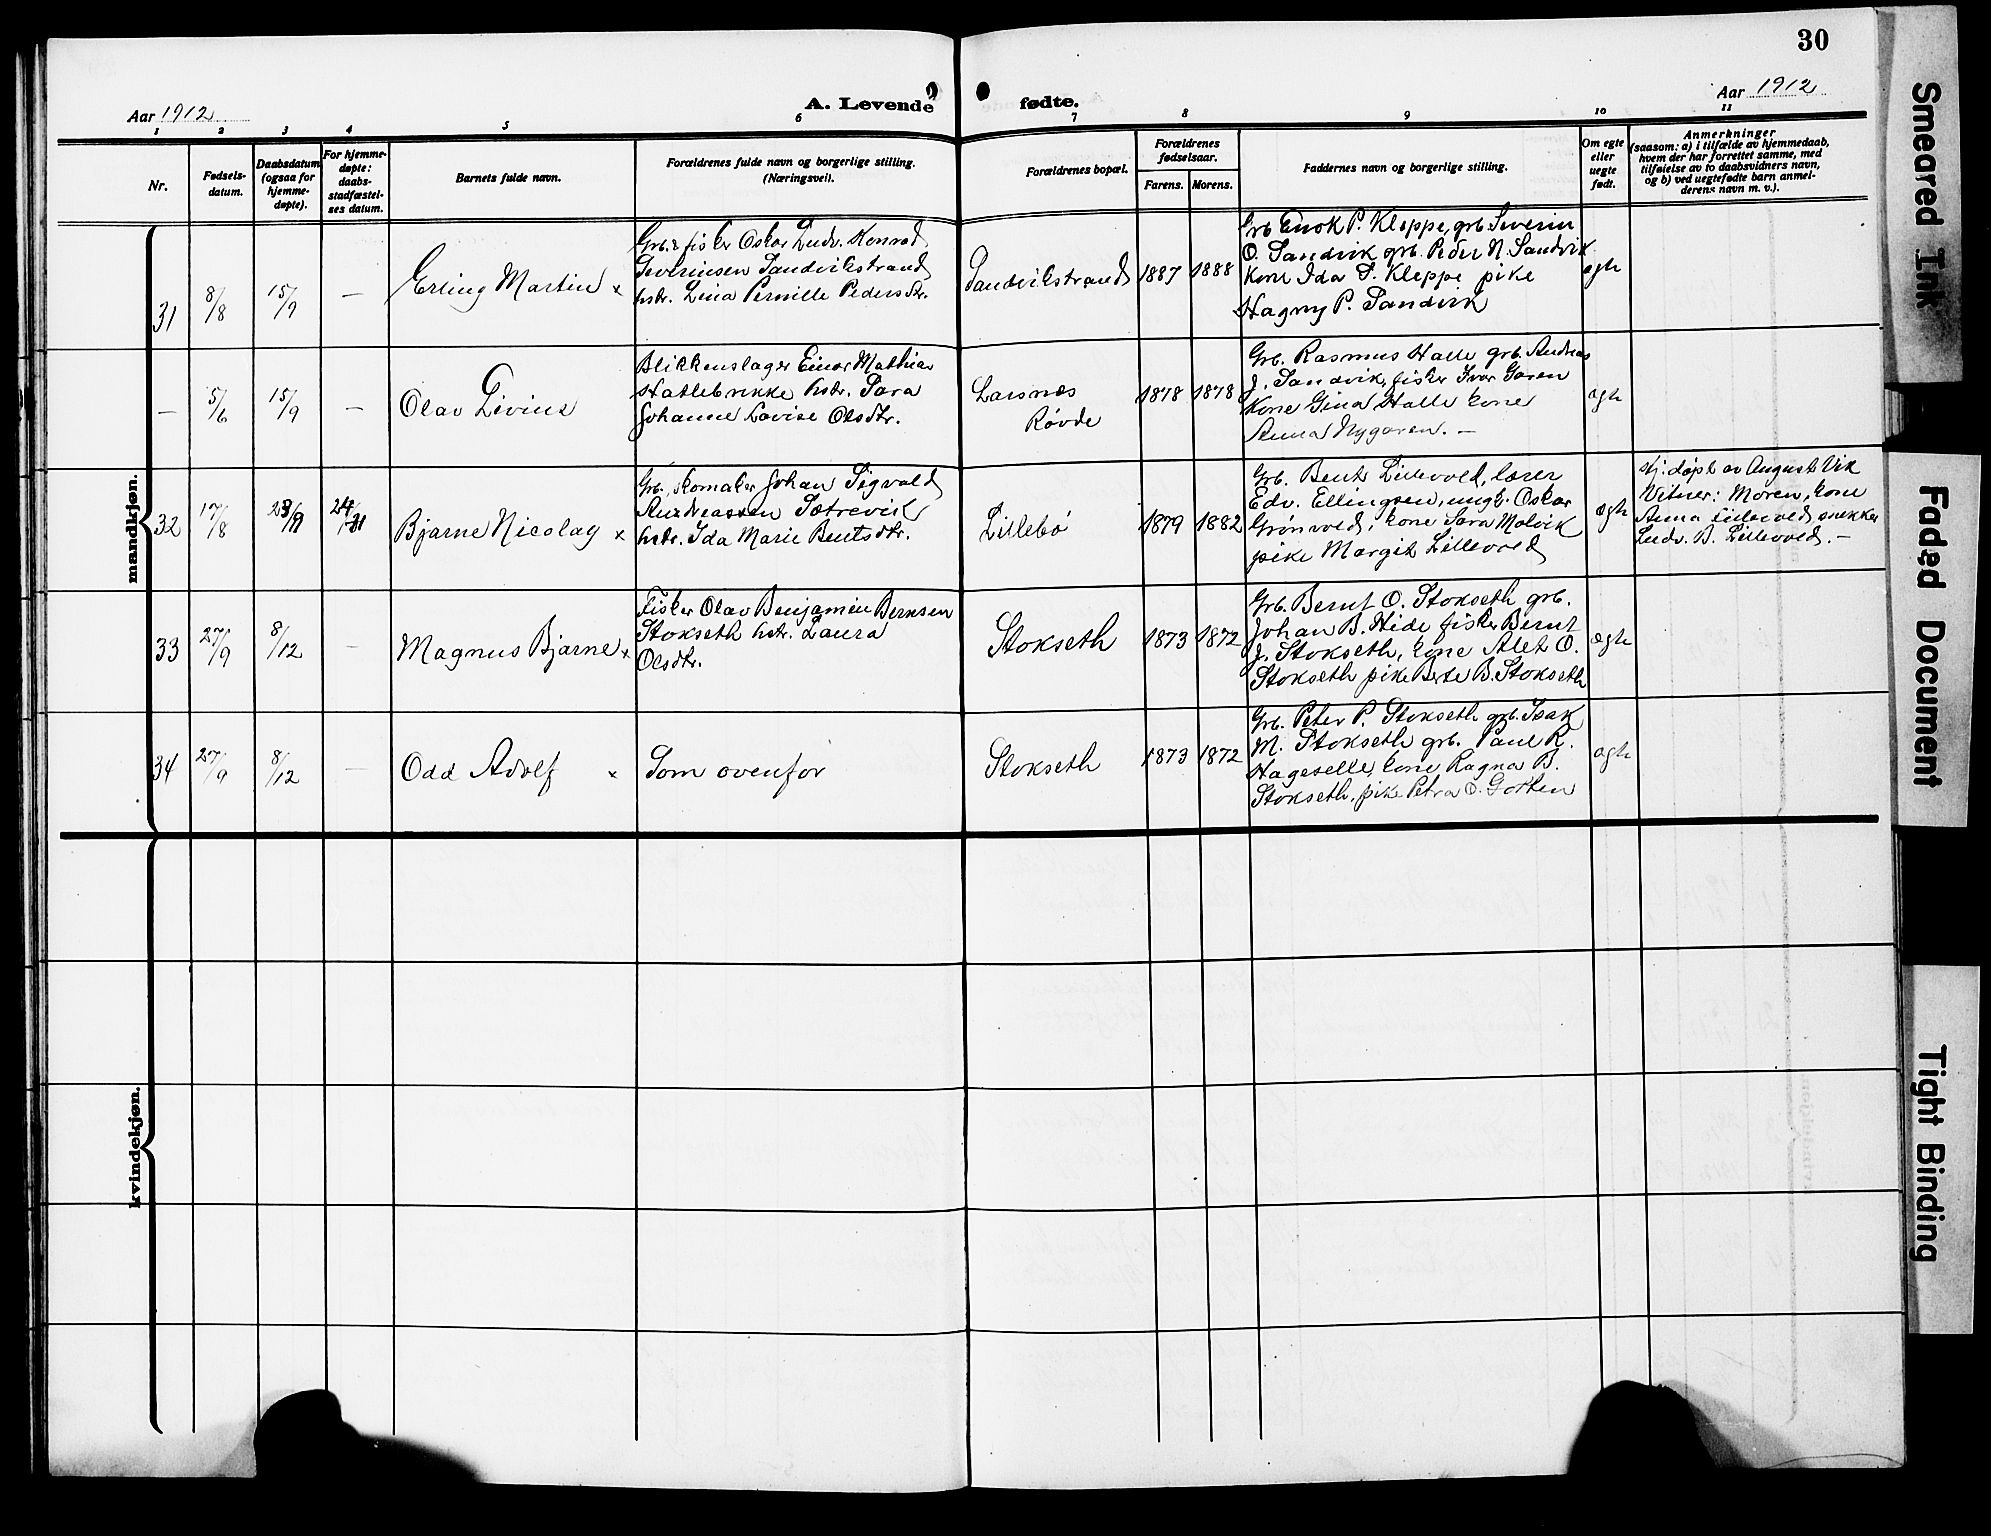 30
Aar 1912
A. Levende fødte.
Aar 1912
1 2 3 4 5 6 7 8 9 10 11
Nr.
Fødsels-
datum.
Daabsdatum
(ogsaa for
hjemme-
døpte).
For hjemme-
døpte:
daabs-
stadfæstel-
ses datum.
Barnets fulde navn.
Forældrenes fulde navn og borgerlige stilling.
(Næringsvei).
Forældrenes bopæl.
Forældrenes
fødselsaar.
Farens. Morens.
Faddernes navn og borgerlige stilling.
Om egte
eller
uegte
født.
Anmerkninger
(saasom: a) i tilfælde av hjemmedaab,
hvem der har forrettet samme, med
tilføielse av to daabsvidners navn,
og b) ved uegtefødte barn anmel-
derens navn m. v.).
mandkjøn.
31
8/8
15/9
—
Erling Martin ×
Grb. & fisker Oskar Ludv. Konrad
Severinsen Sandvikstrand
hstr. Lina Pernille Pedersdtr.
Sandvikstrand
1887 1888
Grb Enok P. Kleppe, grb Severin
O. Sandvik grb. Peder N. Sandvik
Kone Ida S. Kleppe pike
Hagny P. Sandvik
egte
—
5/6
15/9
—
Olav Livius
Blikkenslager Einar Mathias
Hatlebrekke hstr. Sara
Johanne Lovise Olsdtr.
Larsnes
Røvde
1878 1878
Grb. Rasmus Halle grb. Andreas
J. Sandvik, fisker Ivar
Kone Gina Halle kone
Anna Nygaren. —
egte
32
17/8
24/11
Bjarne Nicolay ×
Grb., skomaker Johan Sigvald
Andreassen Sætrevik
hstr. Ida Marie Bentsdtr.
Lillebø
1879 1882
Grb. Bent Lillevold, lærer
Edv. Ellingsen, ungk. Oskar
Grønvold, kone Sara Molvik
pike Margit Lillevold
egte
Hj. døpt av August Vik
Vitner: Moren, kone
Anna Lillevold, snekker
Ludv. B. Lillevold. —
33
27/9
8/12
—
Magnus Bjarne ×
Fisker Olav Benjamin Berntsen
Stokseth hstr. Laura
Olsdtr.
Stokseth
1873 1872
Grb. Bernt O. Stokseth grb.
Johan B. Hide fisker Bernt
J. Stokseth, kone Alet O.
Stokseth pike Berte B. Stokseth
egte
34
27/9
8/12
—
Odd Adolf ×
Som ovenfor
Stokseth
1873 1872
Grb. Peter P. Stokseth grb. Isak
M. Stokseth grb. Paul R.
Hageselle, kone Ragna B.
Stokseth, pike Petra O. Gotten
egte
kvindekjøn.
Smeared Ink
Faded Document
Tight Binding